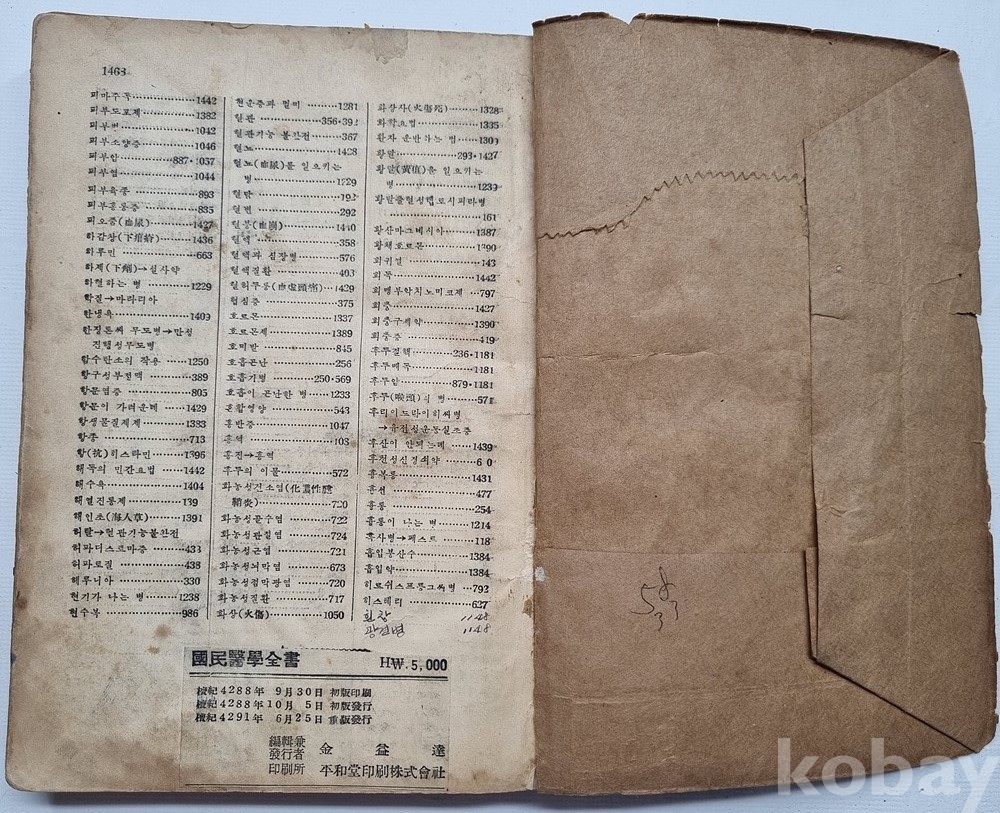 1468
피마주독 1442
피부도포제 1382
피부병 1042
피부소양증 1046
피부암 887·1057
피부염 1044
피부육종 893
피부홍옹증 835
피오줌(血尿) 1427
하감창(下疳瘡) 1436
하루민 663
하제(下劑)→설사약
하혈하는 병 1229
학질→마라리아
한냉욕 1409
한정톤씨 무도병→만성
진행성무도병
함수탄소의 작용 1250
항구성부정맥 389
항문염증 805
항문이 가려운데 1429
항생물질제제 1383
항종 713
항(抗)히스타민 1396
해독의 민간요법 1442
해수욕 1404
해열진통제 139
해인초(海人草) 1391
허탈→혈관기능불완전
허파디스토마증 433
허파로질 438
헤루니아 330
현기가 나는 병 1238
현수복 986
현운증과 멀미 1281
혈관 356·392
혈관기능 불완전 367
혈뇨 1428
혈뇨(血尿)를 일으키는
병 1229
혈담 192
혈변 292
혈붕(血崩) 1440
혈액 358
혈액과 심장병 576
혈액질환 403
혈허두통(血虛頭痛) 1429
협심증 375
호르몬 1337
호르몬제 1389
호미반 845
호흡곤난 256
호흡기병 250·569
호흡이 곤난한 병 1233
혼합영양 543
홍반증 1047
홍역 103
홍진→홍역
후두의 이물 572
화농성건초염(化膿性腱
鞘炎) 720
화농성골수염 722
화농성관절염 724
화농성근염 721
화농성뇌막염 673
화농성점막낭염 720
화농성질환 717
화상(火傷) 1050
화상사(火傷死) 1328
화학요법 1335
환자 운반하는 법 1300
황달 293·1427
황달(黃疸)을 일으키는
병 1239
황달출혈성렙토시피라병
161
황산마그네시아 1387
황체호르몬 1390
회귀열 143
회독 1442
회맹부악치노미코제 797
회충 1427
회충구제약 1390
회충증 419
후두결핵 236·1181
후두매독 1181
후두암 879·1181
후두(喉頭)의 병 571
후리이드라이히씨병
→유전성운동실조증
후산이 안되는데 1439
후천성신경쇠약 6 0
훗복통 1431
흉선 477
흉통 254
흉통이 나는 병 1214
흑사병→페스트 118
흡입붕산수 1384
흡입약 1384
히르쉬스프룽그씨병 792
히스테리 627
횟창 1148
광견병 1148
國民醫學全書 HW.5,000
檀紀4288年 9月30日 初版印刷
檀紀4288年10月 5日 初版發行
檀紀4291年 6月25日 重版發行
編輯兼
發行者 金益達
印刷所 平和堂印刷株式會社
kobay